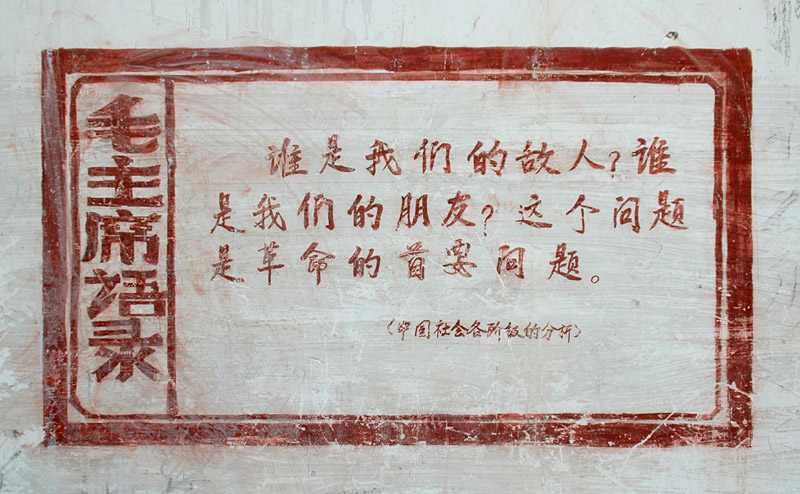 毛主席语录
谁是我们的敌人?谁
是我们的朋友?这个问题
是革命的首要问题。
(中国社会各阶级的分析)